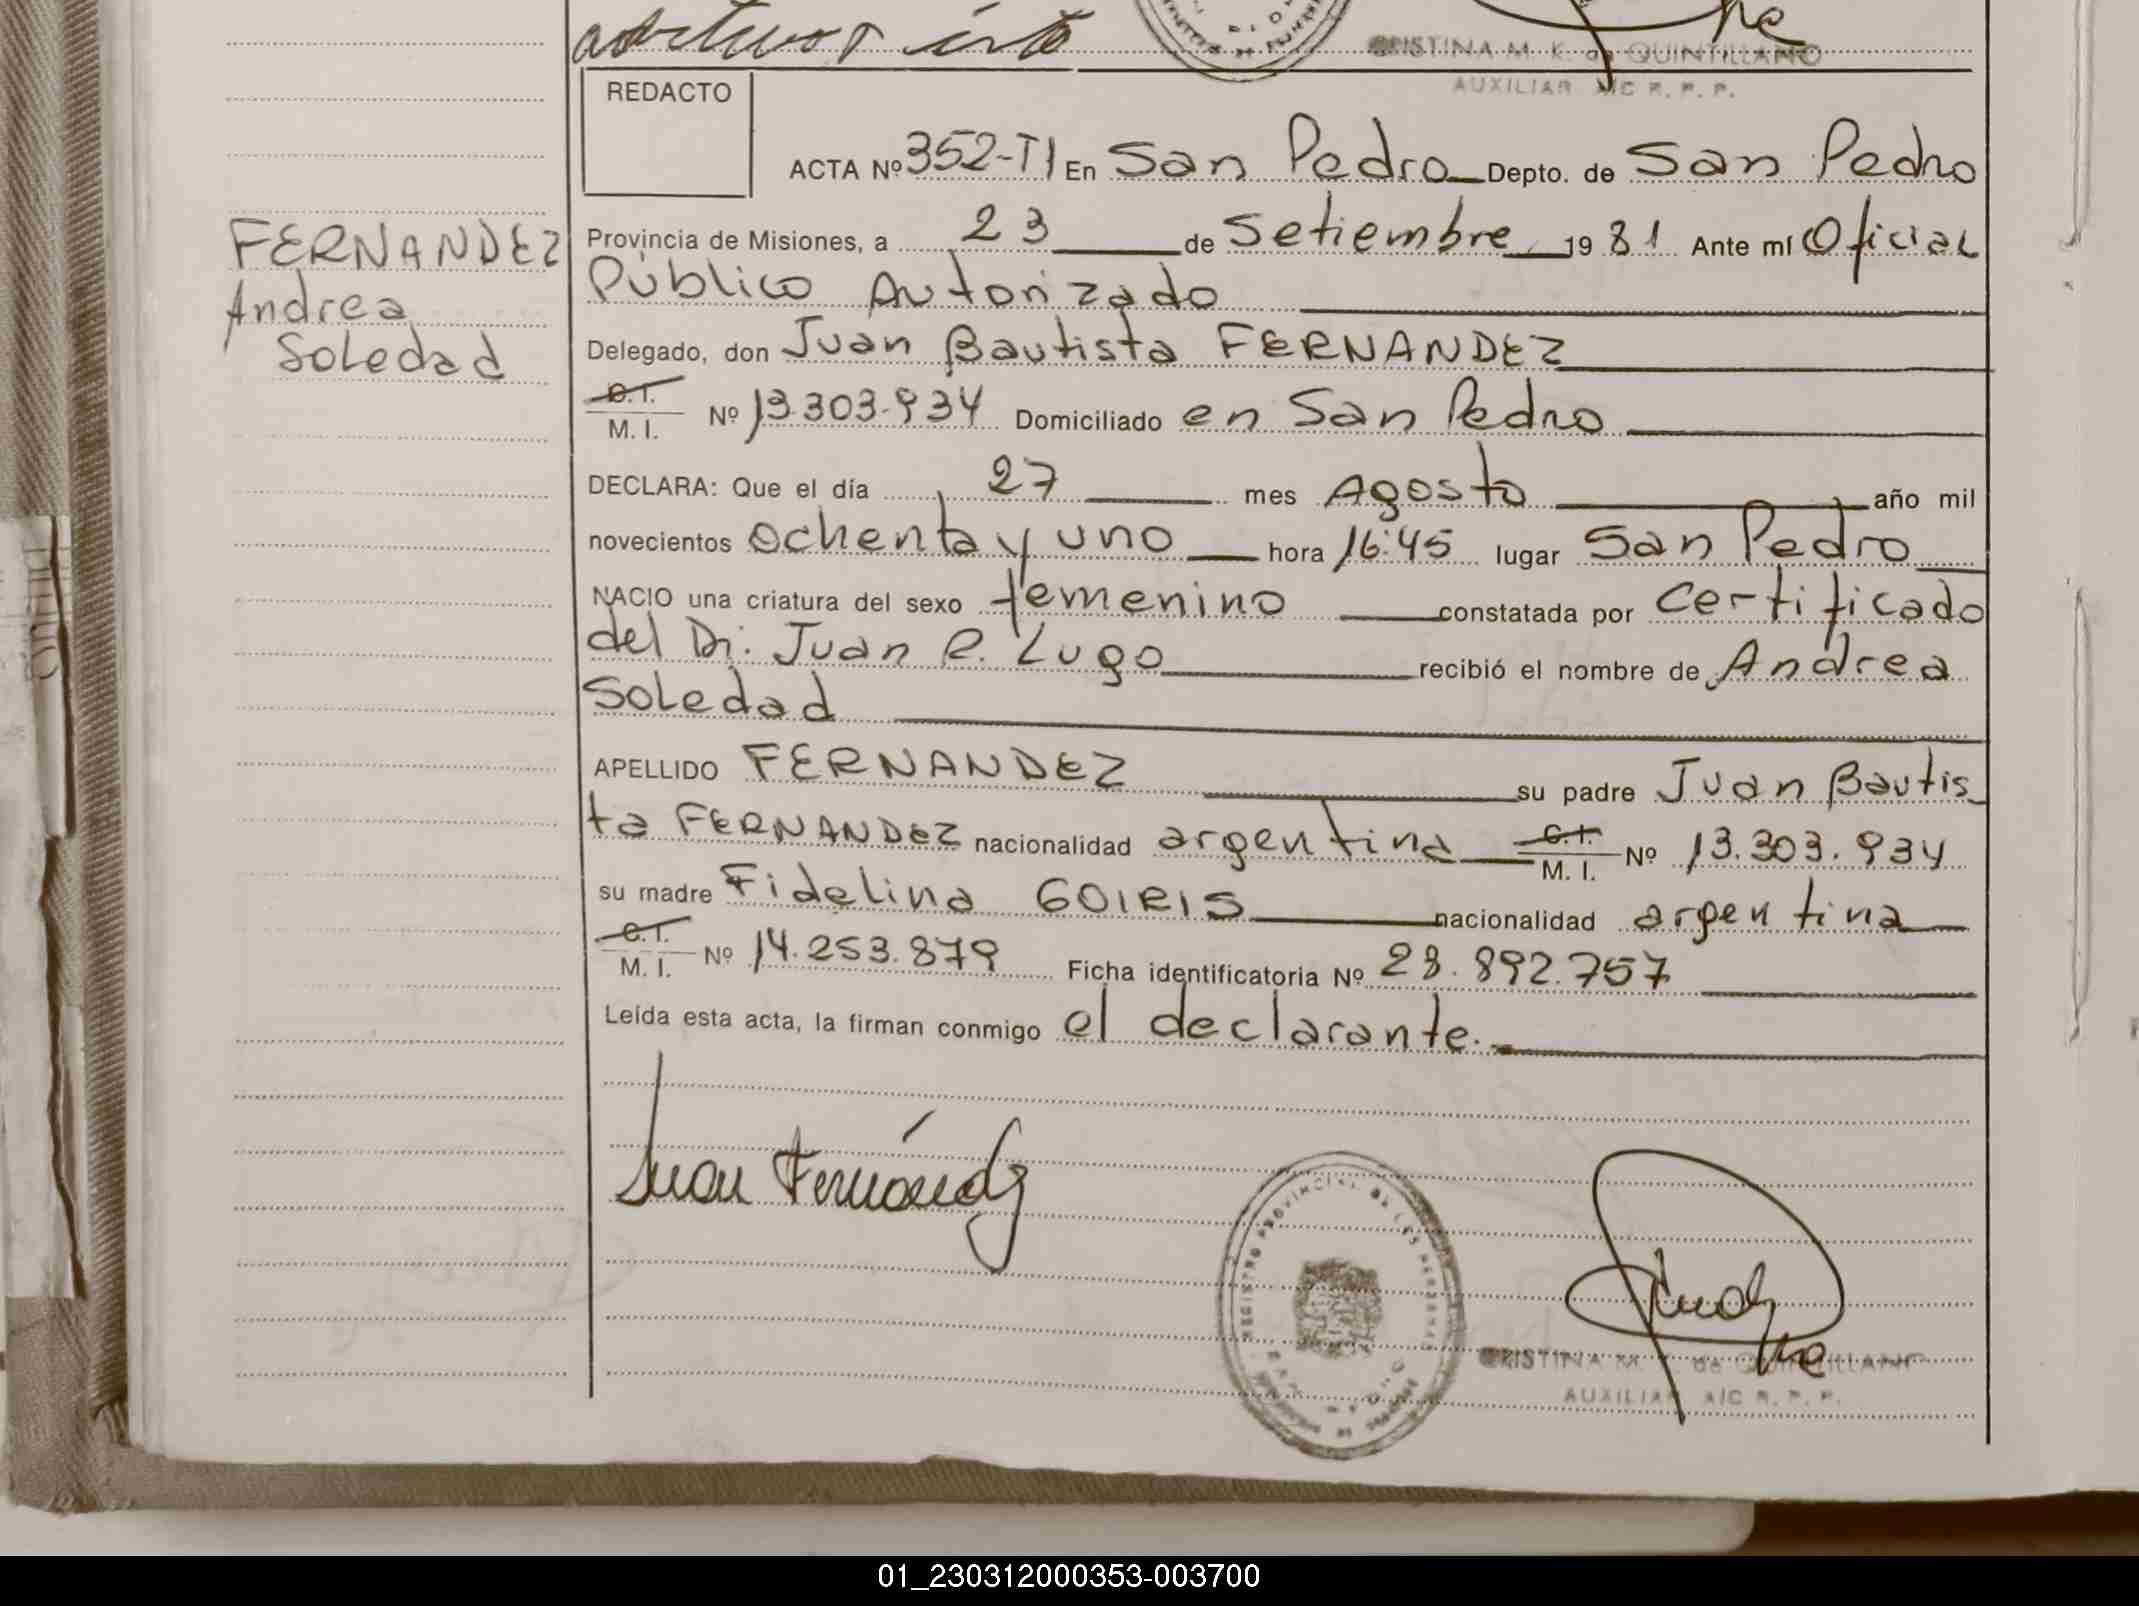 CRISTINA M. K. de QUINTILLANO
AUXILIAR A/C R. P. P.
REDACTO
ACTA Nº 352-TI En San Pedro Depto. de San Pedro
FERNANDEZ
Andrea
Soledad
Provincia de Misiones, a 23 de Setiembre 1981 Ante mí Oficial
Público Autorizado
Delegado, don Juan Bautista FERNANDEZ
C.I.
M. I. Nº 13.303.934 Domiciliado en San Pedro
DECLARA: Que el día 27 mes Agosto año mil
novecientos ochenta y uno hora 16:45 lugar San Pedro
NACIO una criatura del sexo femenino constatada por certificado
del Dr. Juan R. Lugo recibió el nombre de Andrea
Soledad
APELLIDO FERNANDEZ su padre Juan Bautis
ta FERNANDEZ nacionalidad argentina C.I.
M. I. Nº 13.303.934
su madre Fidelina GOIRIS nacionalidad argentina
C.I.
M. I. Nº 14.253.879 Ficha identificatoria Nº 28.892.757
Leída esta acta, la firman conmigo el declarante.
Juan Fernández
REGISTRO PROVINCIAL DE LAS PERSONAS
CRISTINA M. K. de QUINTILLANO
AUXILIAR A/C R. P. P.
01_230312000353-003700